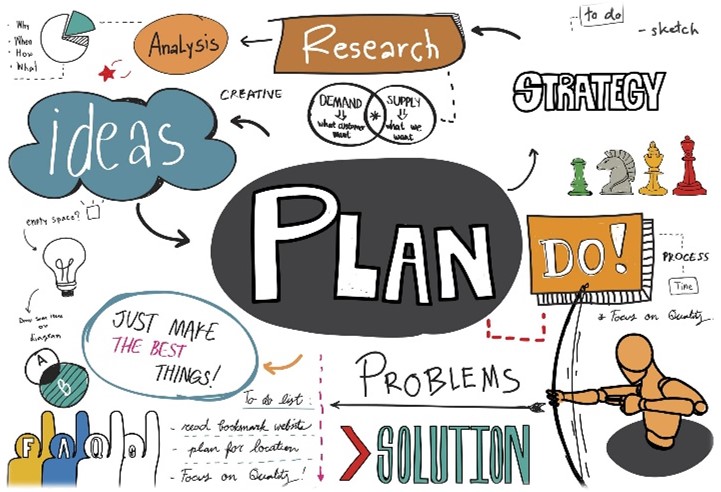 Why
When
How
What
Analysis
Research
to do
- sketch
CREATIVE
DEMAND
what customer
want
*
SUPPLY
what we
want
STRATEGY
ideas
PLAN
empty space?
DO!
PROCESS
Time
* Focus on Quality
or
diagram
A
B
JUST MAKE
THE BEST
THINGS!
PROBLEMS
To do list :
- read bookmark website
- plan for location
- Focus on Quality!
SOLUTION
FAQs